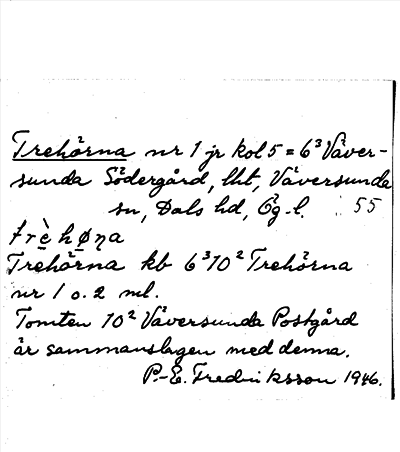 Trehörna nr 1 jr kol 5 = 6³ Väver-
sunda Södergård, lht, Väversunda
sn, Dals hd, Ög. l. 55
trè̱hø̱ƞa
Trehörna kb 6³ 10² Trehörna
nr 1 o. 2 ml.
Tomten 10² Väversunda Postgård
är sammanslagen med denna.
P.-E. Fredriksson 1946.